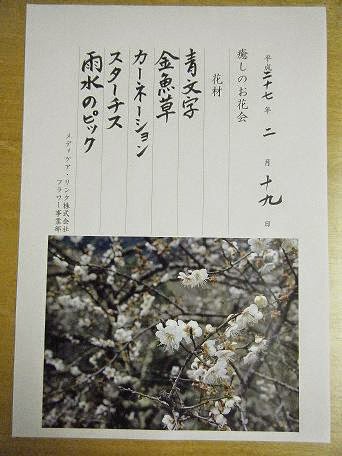 平成二十七年 二月 十九日
癒しのお花会
花材
青文字
金魚草
カーネーション
スターチス
雨水のピック
メディケア・リンク株式会社
フラワー事業部